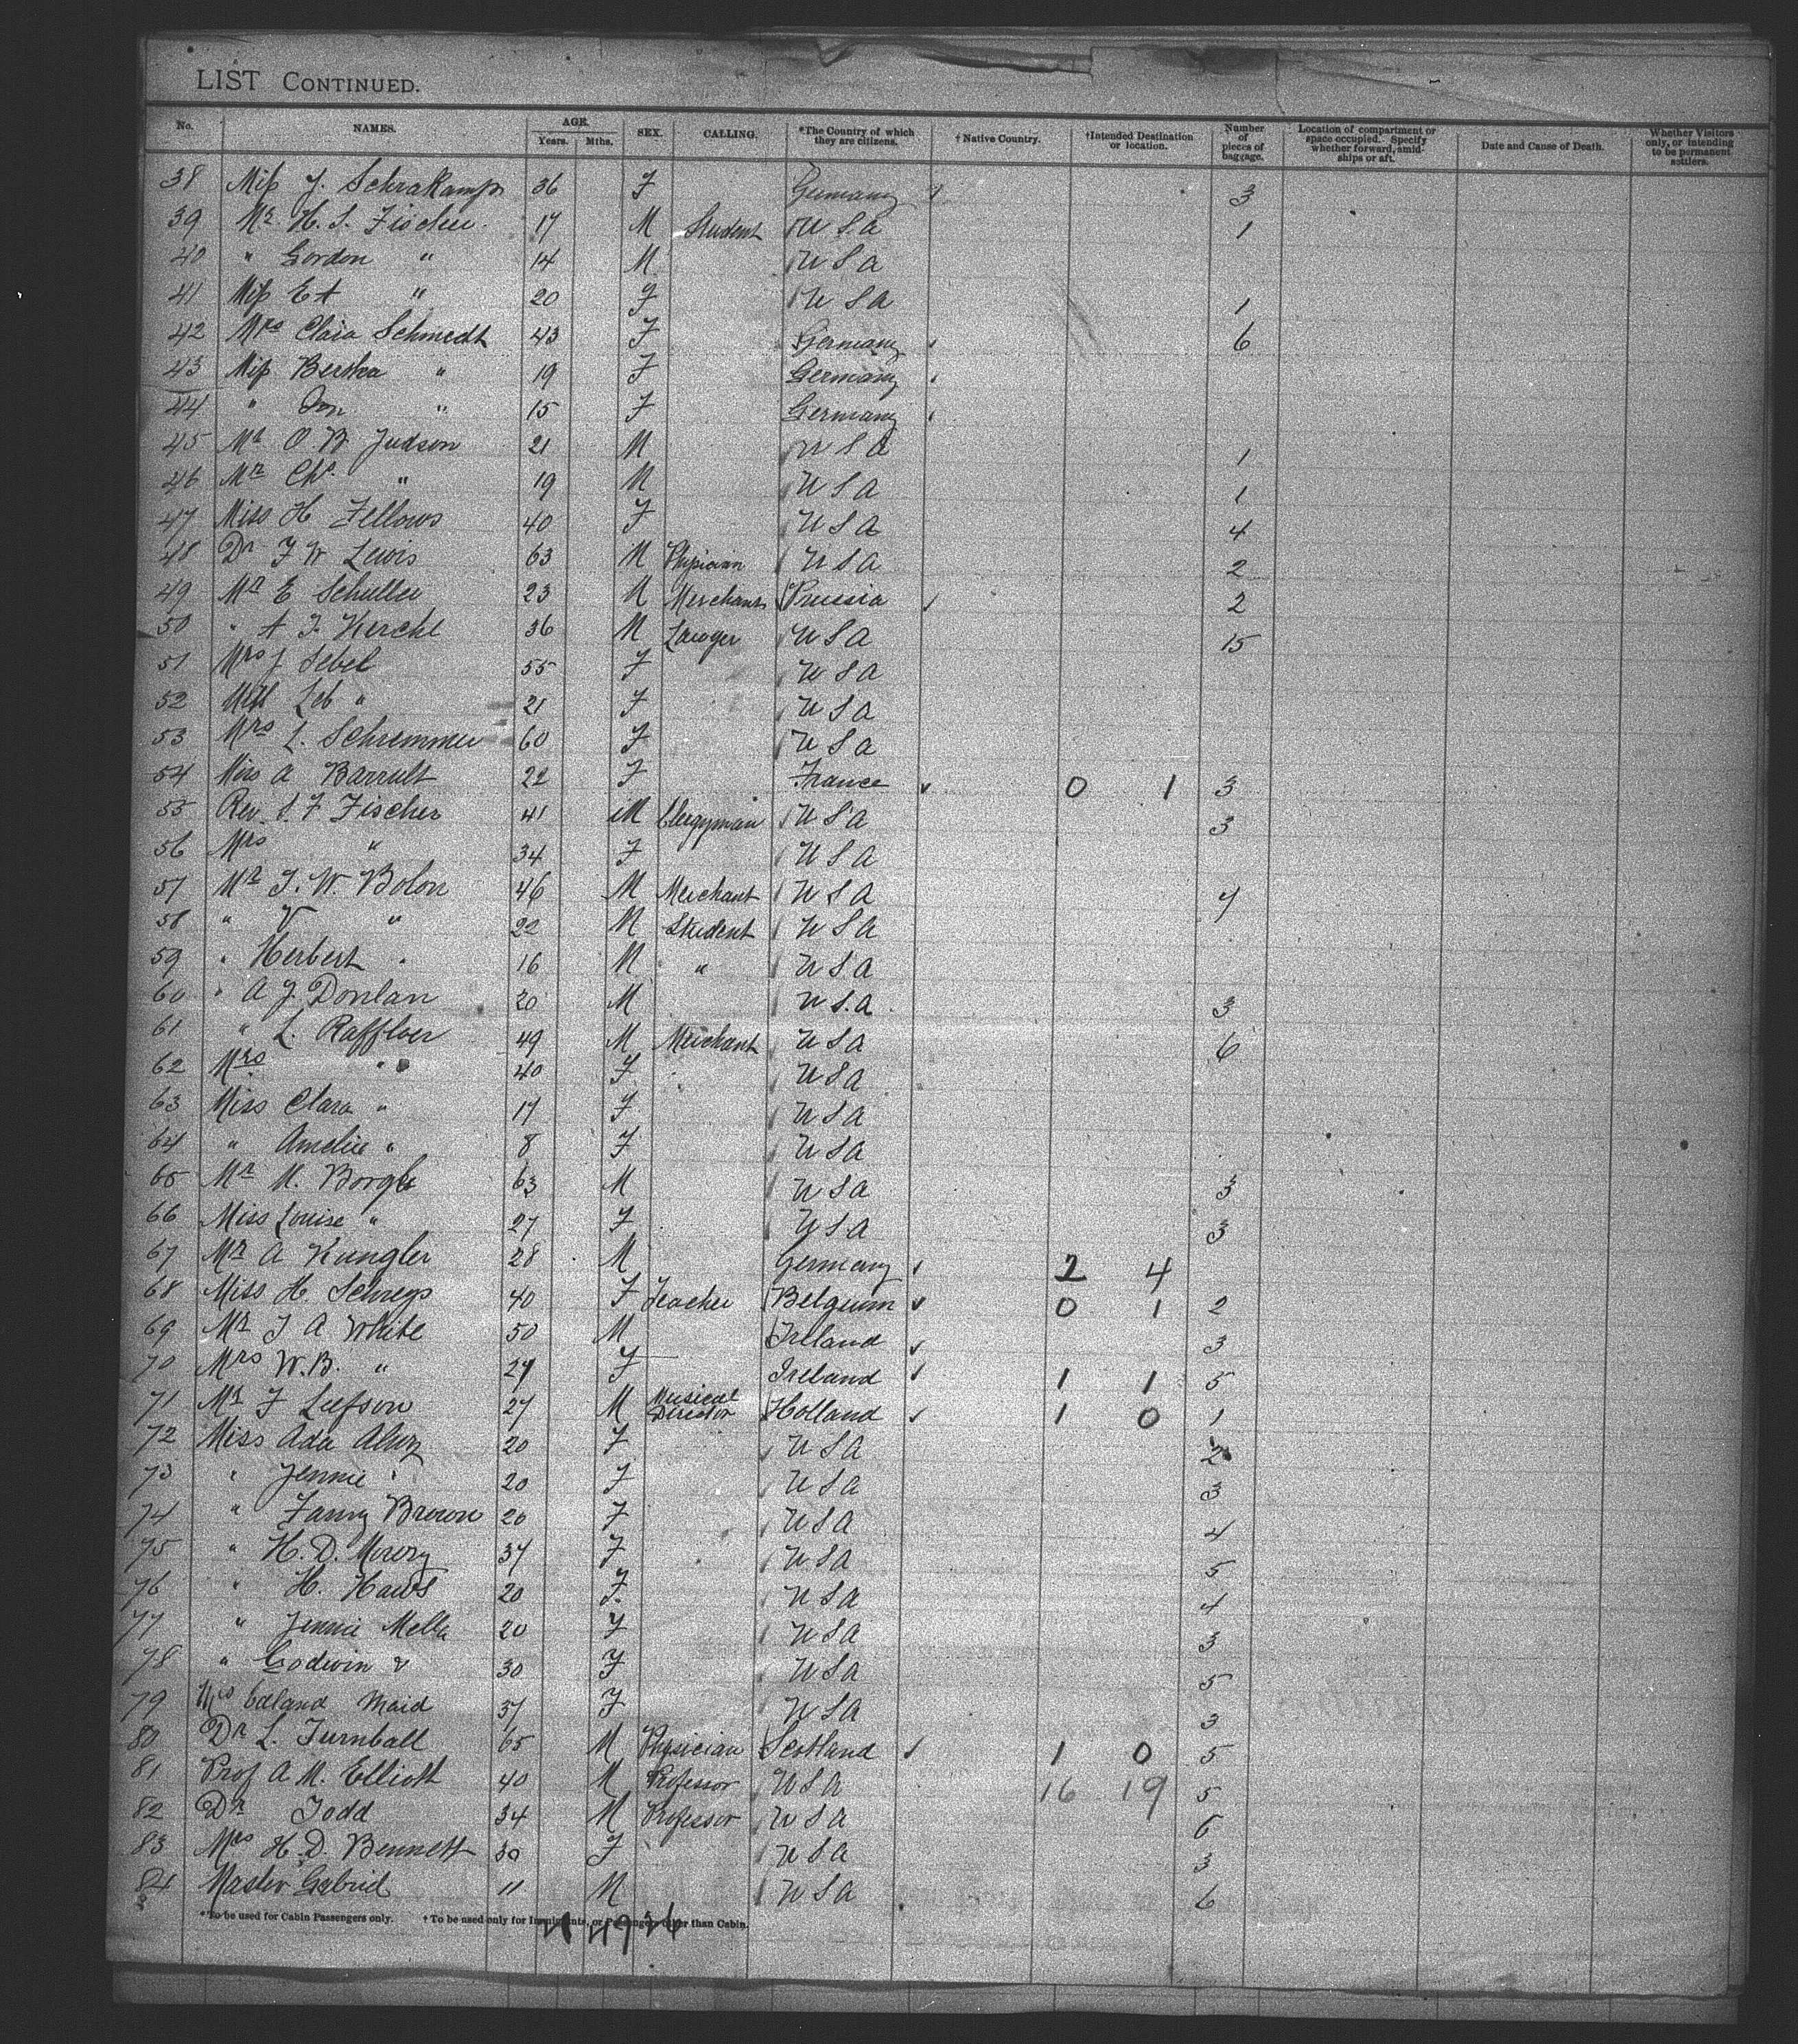 LIST CONTINUED.
No. NAMES. AGE. Years. Mths. SEX. CALLING. *The Country of which they are citizens. † Native Country. †Intended Destination or location. Number of pieces of baggage. Location of compartment or space occupied. Specify whether forward, amidships or aft. Date and Cause of Death. Whether Visitors only, or intending to be permanent settlers.
38 Miss J. Schrakamp 36 F Germany 3
39 Mr H. S. Fischer 17 M Student U S A 1
40 " Gordon " 14 M U S A
41 Miss E A " 20 F U S A 1
42 Mrs Clara Schmedt 43 F Germany 6
43 Miss Bertha " 19 F Germany
44 " " 15 F Germany
45 Mr O. B. Judson 21 M U S A 1
46 Mr Chs. " 19 M U S A 1
47 Miss H Fellows 40 F U S A 4
48 Dr F W Lewis 63 M Physician U S A 2
49 Mr E Schuller 23 M Merchant Prussia 2
50 " A F. Kerchl 36 M Lawyer U S A 15
51 Mrs J Sebel 55 F U S A
52 " 21 F U S A
53 Mrs L. Schremmer 60 F U S A
54 Miss A Barrult 22 F France 0 1 3
55 Rev. S. F Fischer 41 M Clergyman U S A 3
56 Mrs " 34 F U S A
57 Mr T. W. Bolon 46 M Merchant U S A 7
58 " V " 22 M Student U S A
59 " Herbert " 16 M " U S A
60 " A J. Donlan 20 M U S. A 3
61 " L. Raffloer 49 M Merchant U S A 6
62 Mrs " 40 F U S A
63 Miss Clara " 17 F U S A
64 " Amelie " 8 F U S A
65 Mr M. Borgle 63 M U S A 3
66 Miss Louise " 27 F U S A 3
67 Mr A Kungler 28 M Germany 2 4
68 Miss H. Schregs 40 F Teacher Belgium 0 1 2
69 Mr J A White 50 M Ireland 3
70 Mrs W. B. " 27 F Ireland 1 1 5
71 Mr F Leefson 27 M Musical Director Holland 1 0 1
72 Miss Ada 20 F U S A 2
73 " Jennie " 20 F U S A 3
74 " Fanny Brown 20 F U S A 4
75 " H. D. 37 F U S A 5
76 " H. Haws 20 F. U S A 4
77 " Jennie Mella 20 F U S A 3
78 " Godwin & 30 F U S A 5
79 Maid 37 F U S A 3
80 Dr L. Turnball 65 M Physician Scotland 1 0 5
81 Prof A M. Elliott 40 M Professor U S A 16 19 5
82 Dr Todd 34 M Professor U S A 6
83 Mrs H. D. Bennett 30 F U S A 3
84 Master Gabriel 11 M U S A 6
*To be used for Cabin Passengers only. † To be used only for Immigrants, or Passengers other than Cabin.